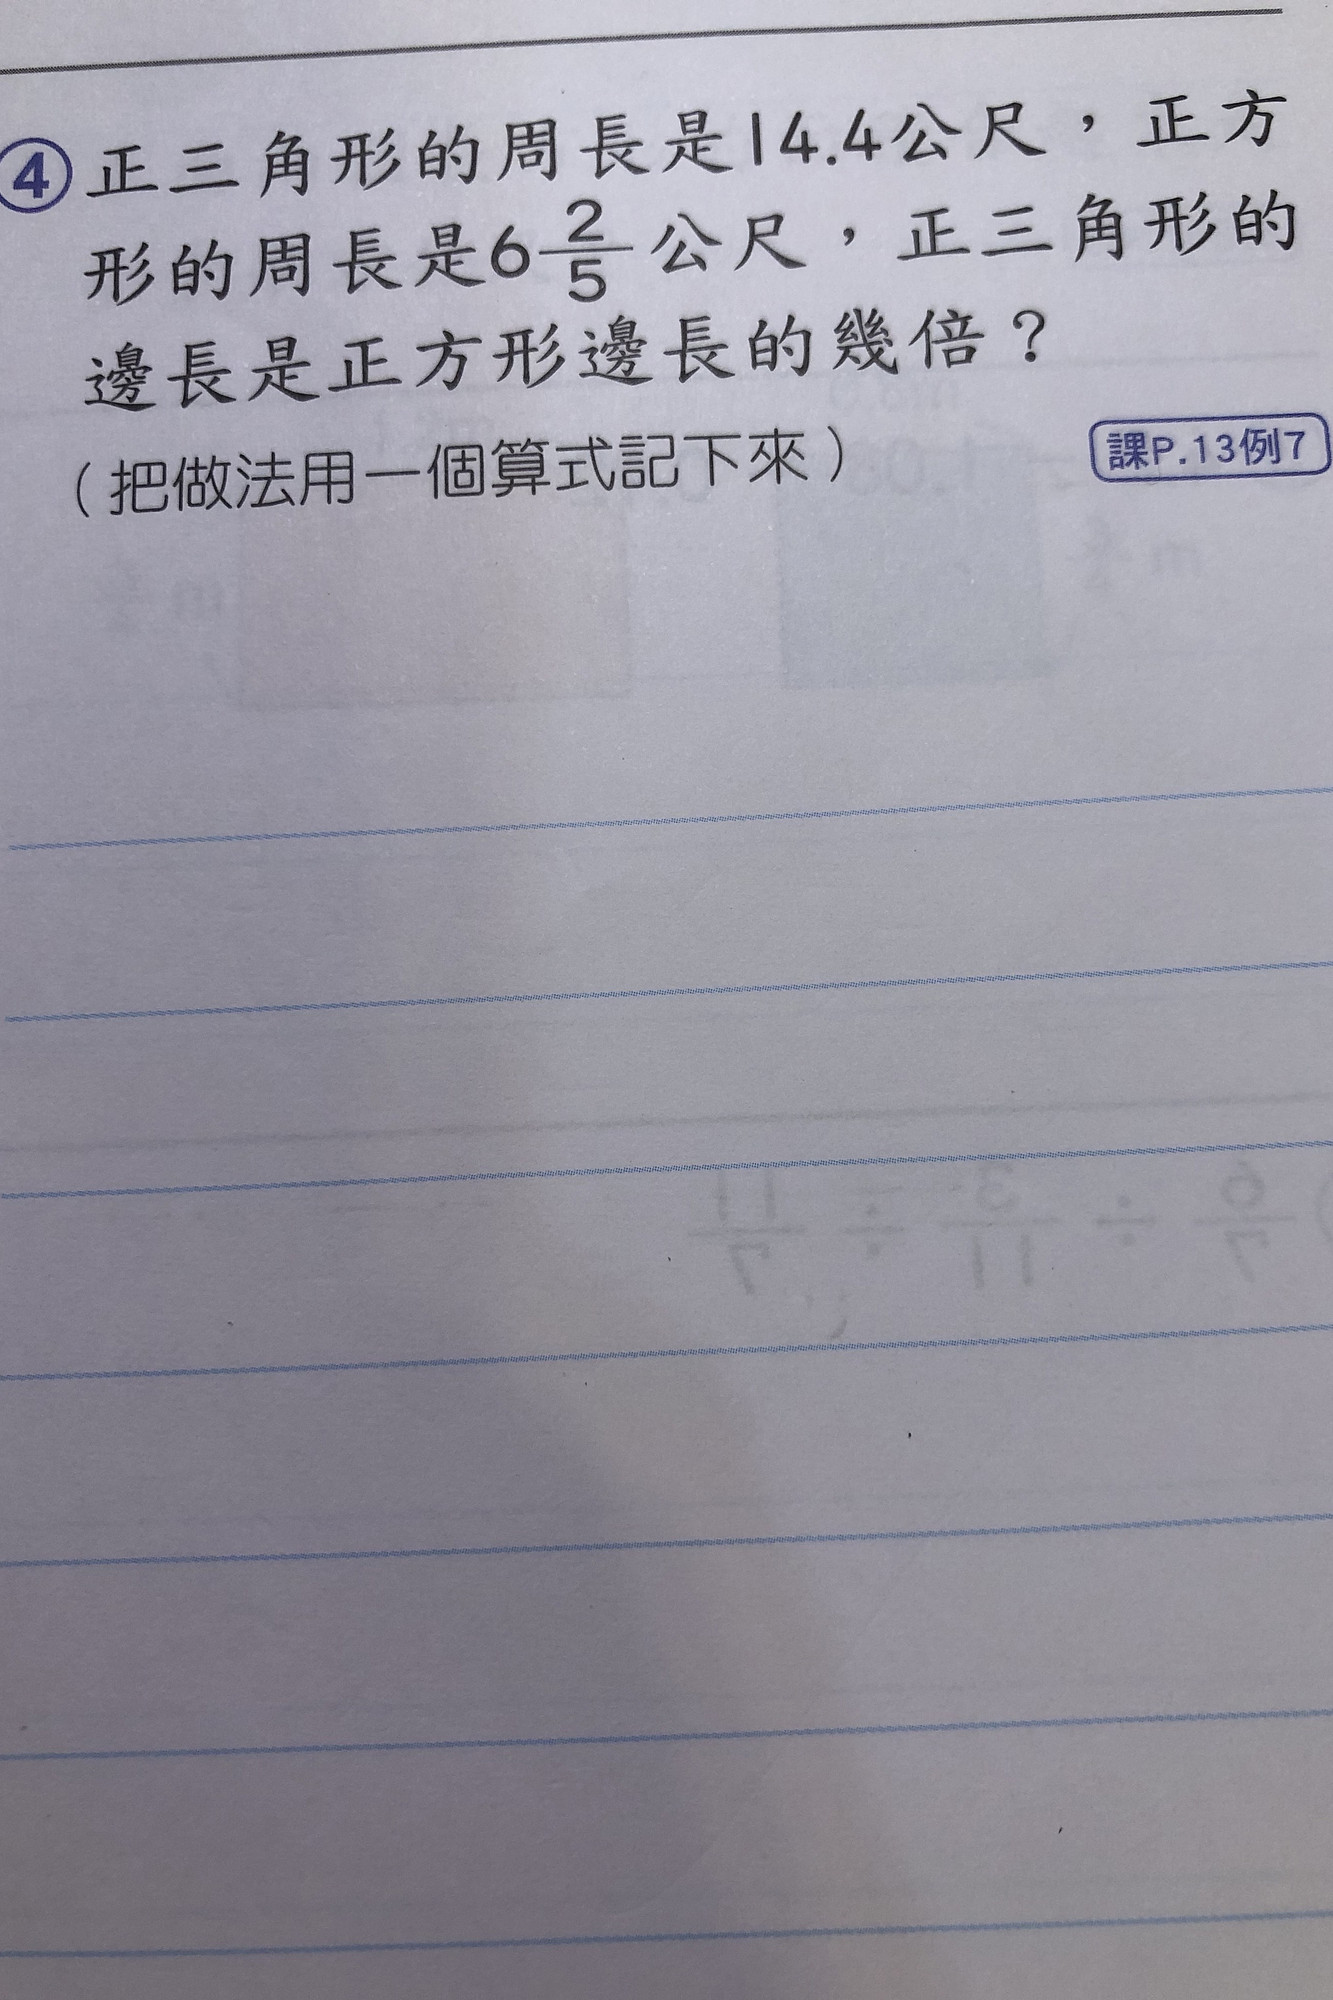 ④正三角形的周長是14.4公尺，正方
形的周長是6 2/5 公尺，正三角形的
邊長是正方形邊長的幾倍？
（把做法用一個算式記下來）
課P.13例7